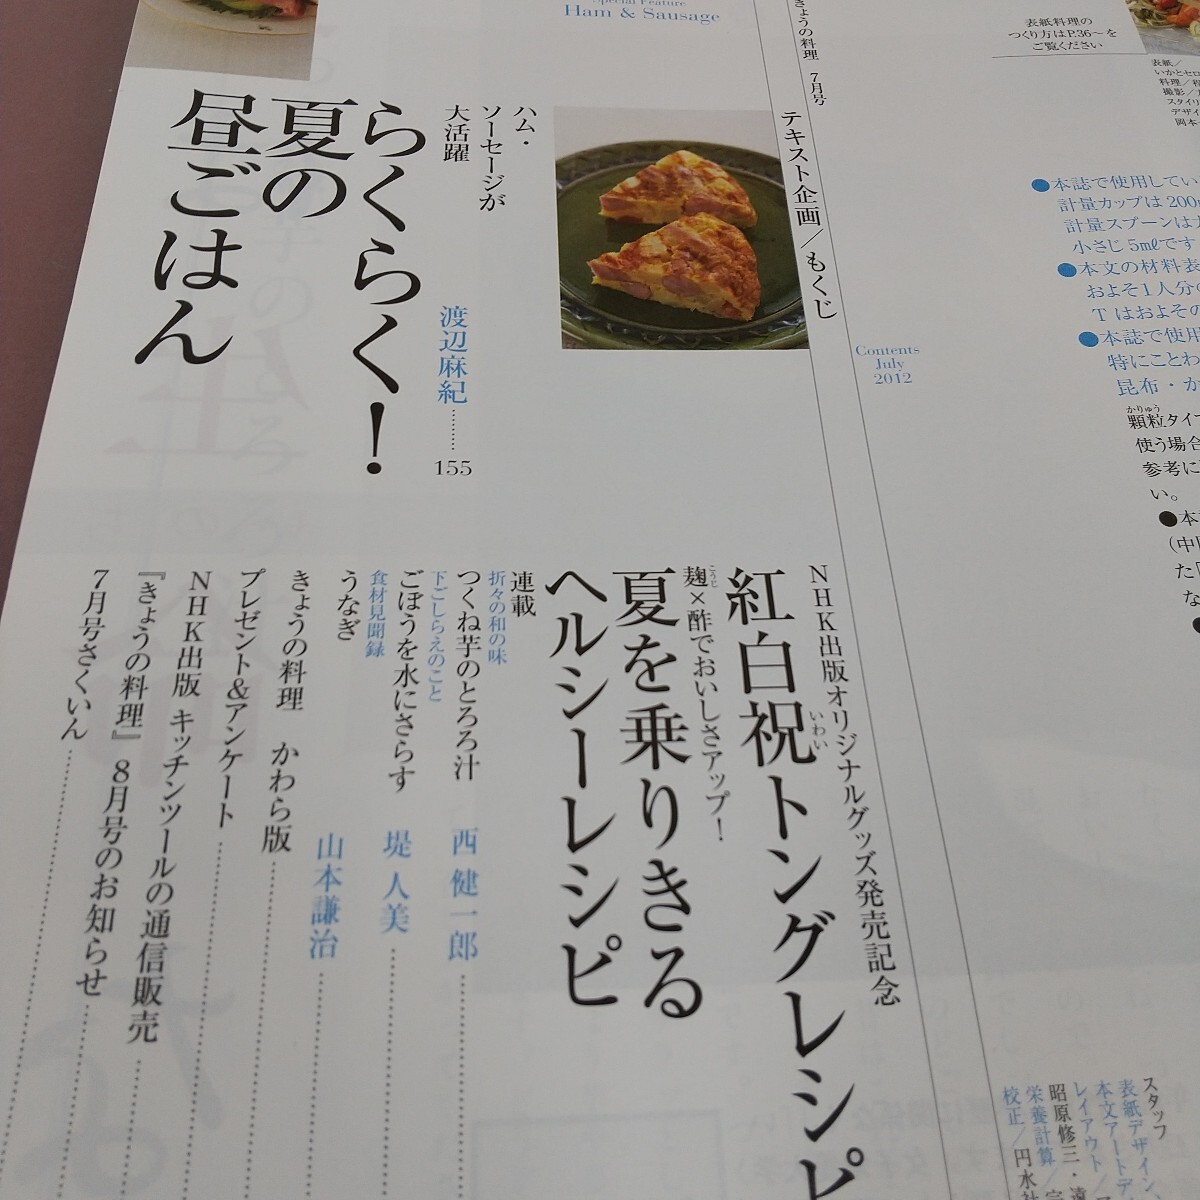 Special Feature
Ham & Sausage
ハム・
ソーセージが
大活躍
らくらく！
夏の
昼ごはん
渡辺麻紀
155
きょうの料理 7月号
テキスト企画／もくじ
Contents
July
2012
表紙料理の
つくり方はP.36〜を
ご覧ください
表紙／
いかとセロ
料理／
撮影／
スタイリ
デザイ
岡本
●本誌で使用してい
計量カップは200m
計量スプーンは大
小さじ5mℓです
●本文の材料表
およそ1人分の
Tはおよその
●本誌で使用
特にことわ
昆布・か
顆粒タイプ
かりゅう
使う場合
参考に
い。
●本
（中
た
な
NHK出版オリジナルグッズ発売記念
紅白祝トングレシピ
いわい
麹×酢でおいしさアップ！
こうじ
夏を乗りきる
ヘルシーレシピ
連載
折々の和の味
つくね芋のとろろ汁
西 健一郎
下ごしらえのこと
ごぼうを水にさらす
堤 人美
食材見聞録
うなぎ
山本謙治
きょうの料理 かわら版
プレゼント&アンケート
NHK出版 キッチンツールの通信販売
『きょうの料理』8月号のお知らせ
7月号さくいん
スタッフ
表紙デザイン
本文アートデ
レイアウト／
昭原修三・遠
栄養計算／宗
校正／円水社